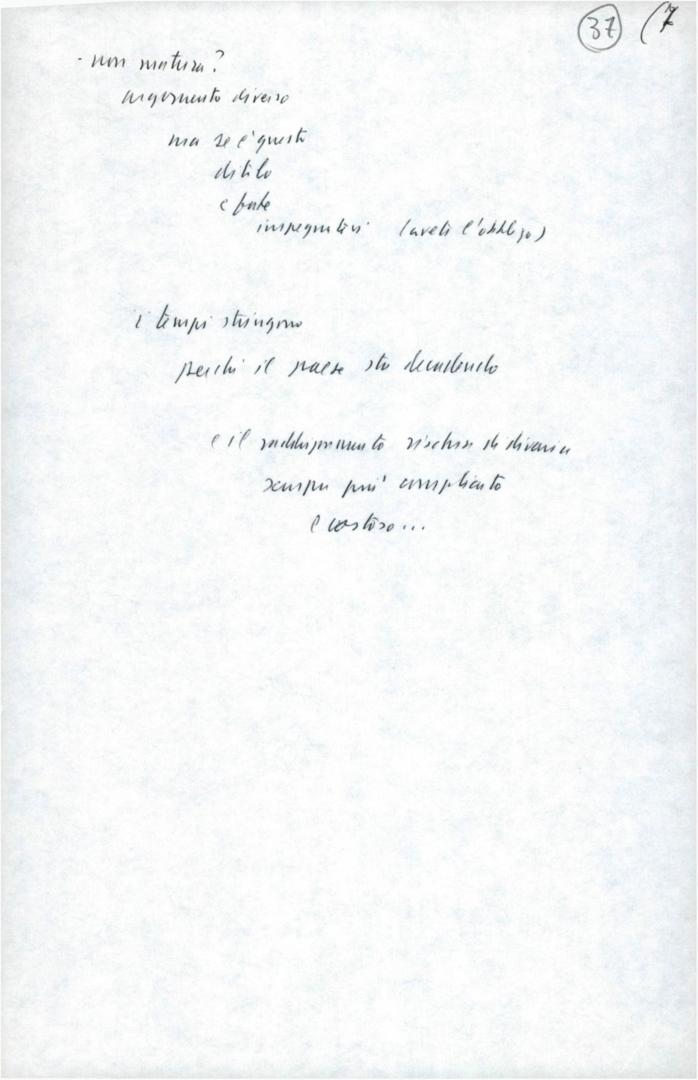 37 (7
- non matura?
argomento diverso
ma se è questo
ditelo
e fate
impegnatevi (avete l'obbligo)
i tempi stringono
perché il paese sta decadendo
e il raddrizzamento rischia di divenire
sempre più complicato
e costoso...